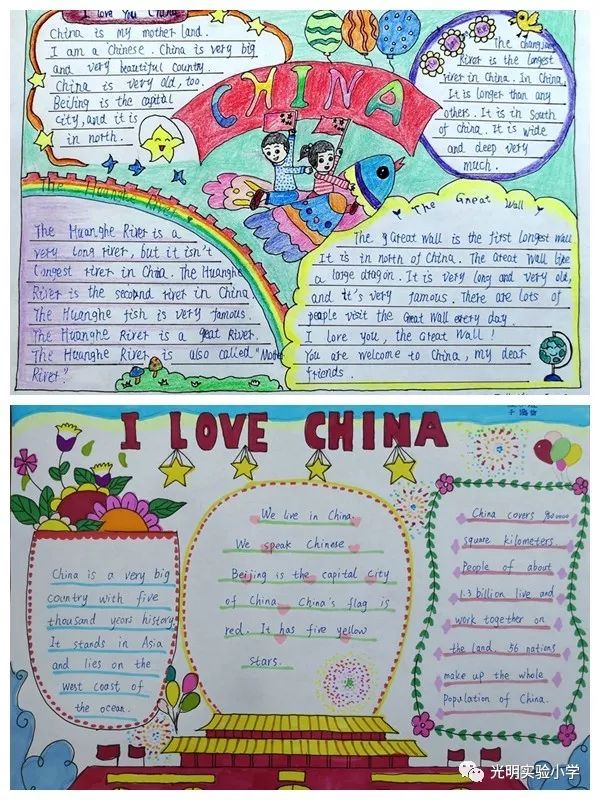 I love You China
China is my mother land.
I am a Chinese. China is very big
and very beautiful country
China is very old, too.
Beijing is the capital
city, and it is
in north.
CHINA
The changjiang
River is the longest
river in China. In China,
It is longer than any
others. It is in south
of China. It is wide
and deep very
much.
The Huanghe River
The Huanghe River is a
very long river, but it isn't
Longest river in China. The Huanghe
River is the second river in China.
The Huanghe fish is very famous.
The Huanghe River is a geat River.
The Huanghe River is also called "Mother
River."
The Great Wall
The Great Wall is the first longest wall
It is in north of China. The Great Wall like
a large dragon. It is very long and very old,
and it's very famous. There are lots of
people visit the Great Wall every day.
I love you, the Great Wall!
You are welcome to China, my dear
friends.
I LOVE CHINA
China is a very big
country with five
thousand years history.
It stands in Asia
and lies on the
west coast of
the ocean.
We live in China.
We speak Chinese.
Beijing is the capital city
of China. China's flag is
red. It has five yellow
stars.
China covers
square kilometers
People of about
1.3 billion live and
work together on
the land. 56 nations
make up the whole
Population of China.
光明实验小学